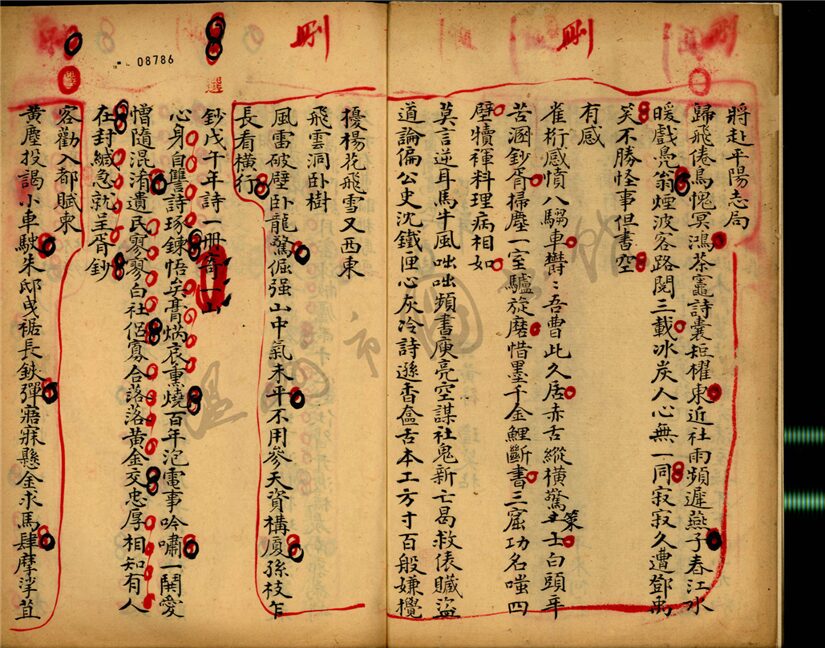 刪
刪
08786
選
將赴平陽志局
歸飛倦鳥愧冥鴻茶竈詩囊短櫂東近社雨頻遲燕子春江水
暖戲鳧翁煙波客路閱三載冰炭人心無一同寂寂久遭鄧禹
笑不勝怪事但書空
有感
雀桁感憤八騶車鬱〻吾曹此久居赤舌縱橫驚策士白頭辛
苦溷鈔胥掃塵一室驢旋磨惜墨千金鯉斷書三窟功名嗤四
壁犢褌料理病相如
莫言逆耳馬牛風咄咄頻書庾亮空謀社鬼新亡曷救俵贓盜
道論偏公史沈鐵匣心灰冷詩遜香奩舌本工方寸百般嫌攪
擾楊花飛雪又西東
飛雲洞臥樹
風雷破壁臥龍驚倔强山中氣未平不用參天資構廈孫枝乍
長看橫行
鈔戊午年詩一冊寄一山
心身自讐詩琢鍊悟矣膏焫哀熏燒百年泡電事吟嘯一鬨愛
憎隨混淆遺民寥寥白社侶寡合落落黃金交忠厚相知有人
在封緘急就呈胥鈔
客勸入都賦柬
黃塵投謁小車駛朱邸曳裾長鋏彈寤寐懸金求馬肆摩挲苴